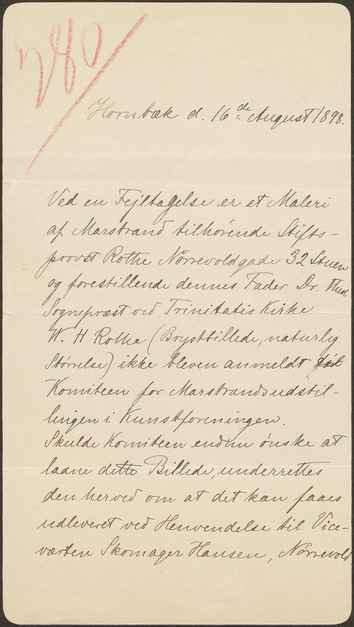 280
Hornbæk d. 16de August 1898.
Ved en Fejltagelse er et Maleri
af Marstrand tilhørende Stifts-
provst Rothe Nørrevoldgade 32 Stuen
og forestillende dennes Fader Dr. theol.
Sognepræst ved Trinitatis Kirke
W. H Rothe (Brystbillede, naturlig
Størrelse) ikke bleven anmeldt
Komiteen for Marstrandsudstil-
lingen i Kunstforeningen.
Skulde Komiteen endnu ønske at
laane dette Billede, underrettes
den herved om at det kan faaes
udleveret ved Henvendelse til Vice-
værten Skomager Hansen, Nørrevold